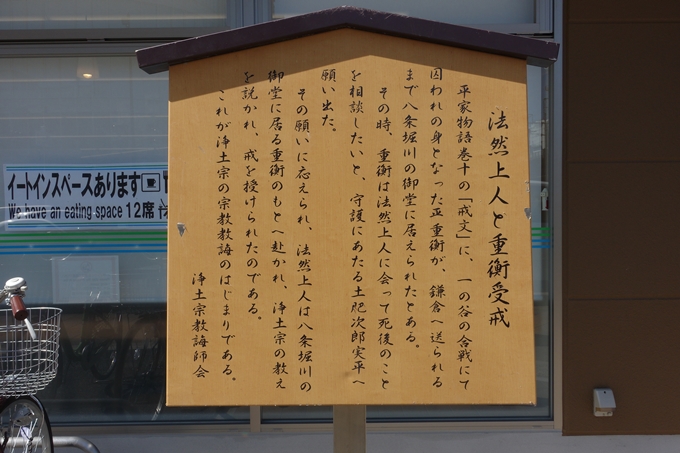 法然上人と重衡受戒
平家物語巻十の「戒文」に、一の谷の合戦にて
囚われの身となった平重衡が、鎌倉へ送られる
まで八条堀川の御堂に居えられたとある。
その時、重衡は法然上人に会って死後のこと
を相談したいと、守護にあたる土肥次郎実平へ
願い出た。
その願いに応えられ、法然上人は八条堀川の
御堂に居る重衡のもとへ赴かれ、浄土宗の教え
を説かれ、戒を授けられたのである。
これが浄土宗の宗教教誨のはじまりである。
浄土宗教誨師会
イートインスペースあります
We have an eating space 12席